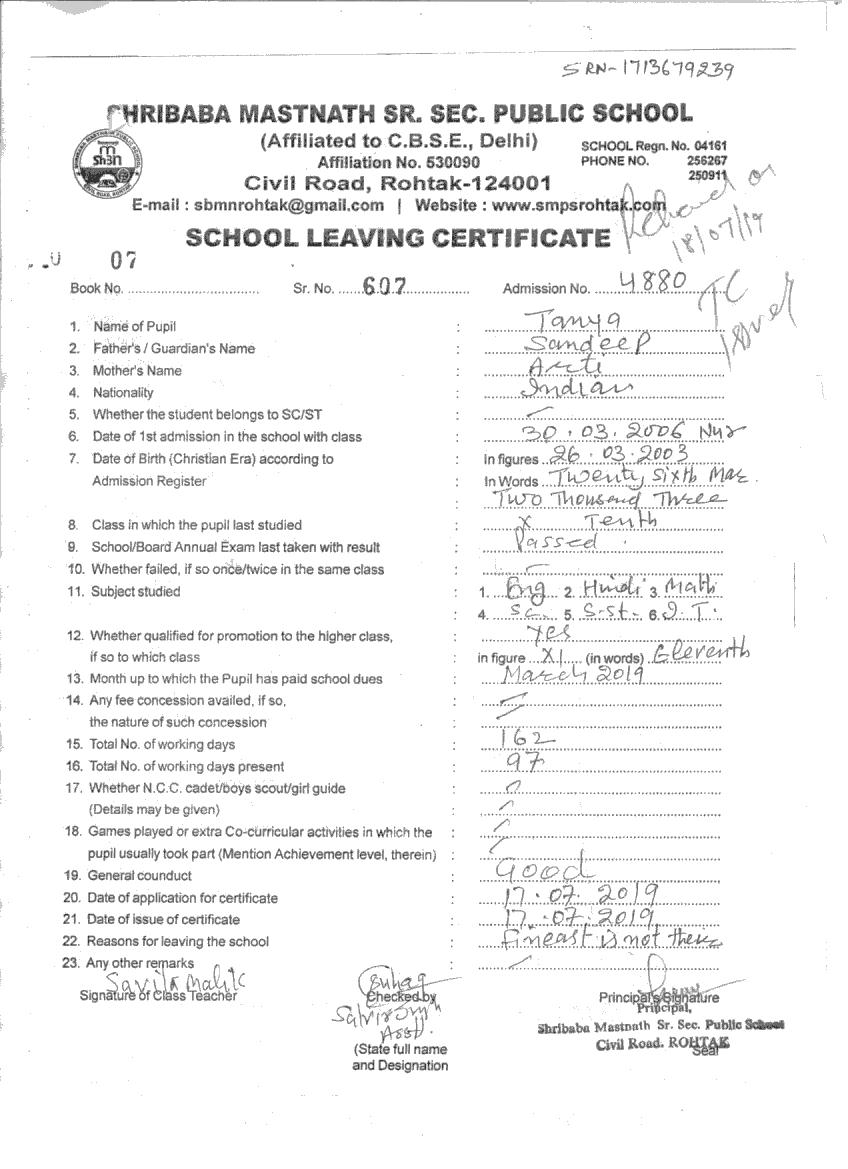 SRN-1713679239
SHRIBABA MASTNATH SR. SEC. PUBLIC SCHOOL
(Affiliated to C.B.S.E., Delhi)
Affiliation No. 530090
SCHOOL Regn. No. 04161
PHONE NO. 256267
250911
Civil Road, Rohtak-124001
E-mail : sbmnrohtak@gmail.com | Website : www.smpsrohtak.com
on
18/07/19
SCHOOL LEAVING CERTIFICATE
07
Book No. Sr. No. 607 Admission No. 4880
TC
1. Name of Pupil : Tanya
2. Father's / Guardian's Name : Sandeep
3. Mother's Name : Arti
4. Nationality : Indian
5. Whether the student belongs to SC/ST : –
6. Date of 1st admission in the school with class : 30.03.2006 Nur
7. Date of Birth (Christian Era) according to : In figures 26.03.2003
Admission Register : In Words Twenty Sixth Mar.
Two Thousand Three
8. Class in which the pupil last studied : X Tenth
9. School/Board Annual Exam last taken with result : Passed
10. Whether failed, if so once/twice in the same class : –
11. Subject studied : 1. Eng 2. Hindi 3. Math
4. Sc. 5. S-St- 6. I.T.
12. Whether qualified for promotion to the higher class, : Yes
if so to which class in figure XI (in words) Eleventh
13. Month up to which the Pupil has paid school dues : March 2019
14. Any fee concession availed, if so, : –
the nature of such concession : –
15. Total No. of working days : 162
16. Total No. of working days present : 97
17. Whether N.C.C. cadet/boys scout/girl guide :
(Details may be given) : –
18. Games played or extra Co-curricular activities in which the : –
pupil usually took part (Mention Achievement level, therein) : –
19. General counduct : Good
20. Date of application for certificate : 17.07.2019
21. Date of issue of certificate : 17.07.2019
22. Reasons for leaving the school : is not there
23. Any other remarks : –
Savita Malik
Signature of Class Teacher
Checked by
Asst.
(State full name
and Designation
Principal's Signature
Principal,
Shribaba Mastnath Sr. Sec. Public School
Civil Road, ROHTAK
Seal